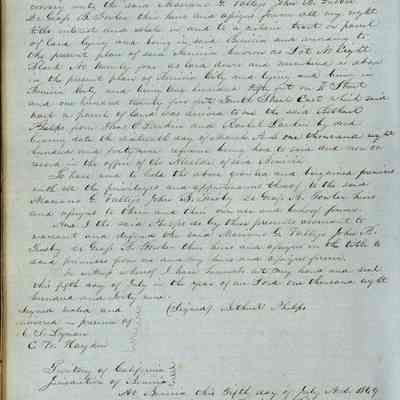 convey unto the said Mariano G. Vallejo John B. Frisbie
De Graff A. Fowler their heirs and assigns forever all my right
title interest and estate in and to a certain tract or parcel
of land lying and being in said Benicia and according to
the present plan of said Benicia known as Lot No Eight
Block No twenty four as laid down and numbered as above
in the present plan of Benicia City and lying and being in
Benicia City and being one hundred fifty feet on D Street
and one hundred twenty five feet South Street East which said
part a parcel of land was devised to me the said Bethuel
Phelps from Thos O Larkin and Rachel Larkin by and
bearing date the sixteenth day of A.D. one thousand eight
hundred and forty nine reference being had to said and now on
record in the office of the Alcalde of said Benicia
To have and to hold the above granted and bargained premises
with all the privileges and appurtenances thereof to the said
Mariano G. Vallejo John B. Frisbie De Graff A. Fowler heirs
and assigns to them and their own use and behoof forever
And I the said Phelps do by these presents covenant to
warrant and defend the said Mariano G. Vallejo John B.
Frisby De Graff A. Fowler their heirs and assigns in the title to
said premises from me and my heirs and assigns forever
In witness whereof I have hereunto set my hand and seal
this fifth day of July in the year of our Lord one thousand eight
hundred and forty nine
Signed sealed and
delivered in presence of (Signed) Bethuel Phelps
C. S. Lyman
C. W. Hayden
Territory of California
Jurisdiction of Benicia
At Benicia this Fifth day of July A.D. 1849